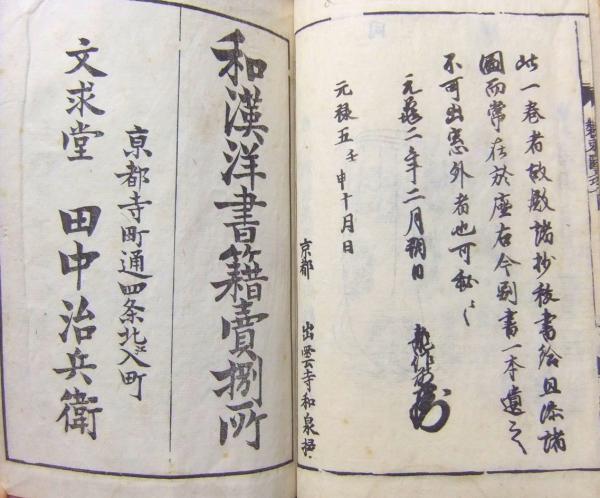 此一巻者故殿諸抄被書給且添諸
圖而常在於座右今別書一本遺之
不可出窓外者也可秘〱
元龜二年二月朔日
元禄五壬申十月日
京都 出雲寺和泉掾
和漢洋書籍賣捌所
京都寺町通四条北エ入町
文求堂 田中治兵衛